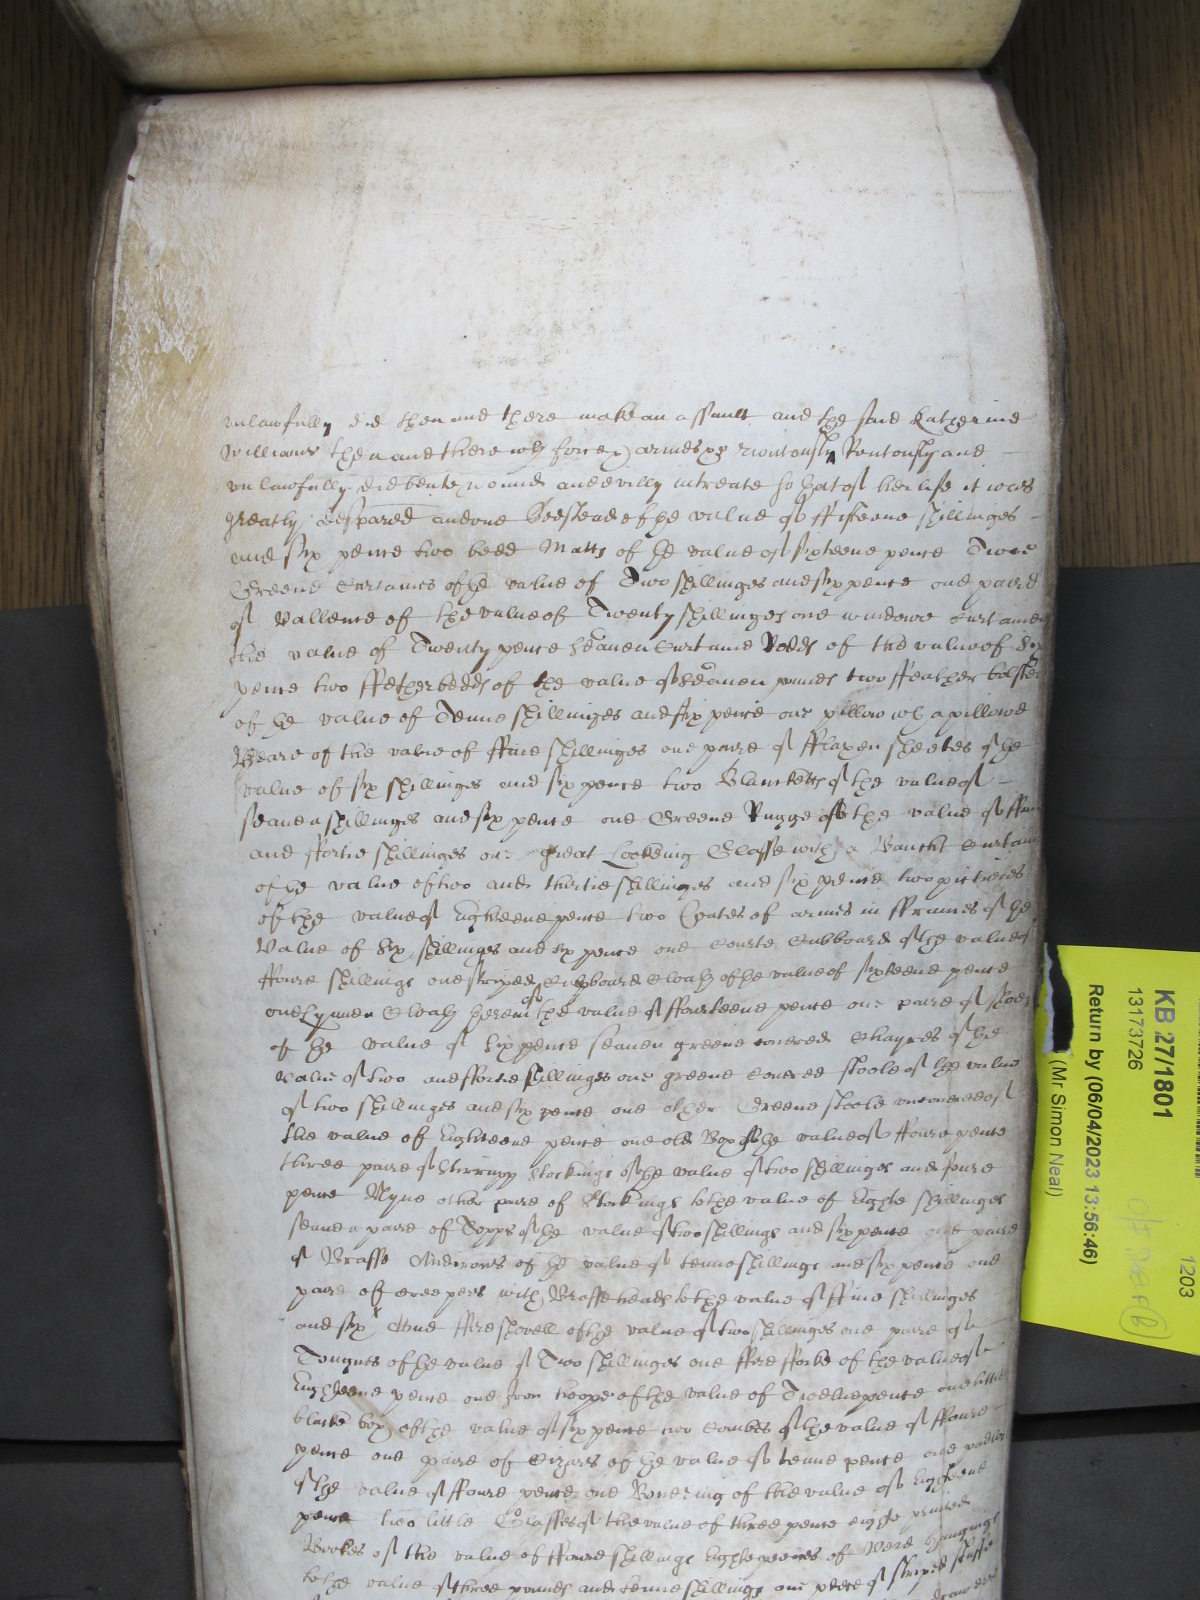 vnlawfully did then and there make an assault and the said Katherine
Williams then and there wth force & armes &c rioutously Routously and
vnlawfully did beate wound and evilly intreate so that of her life it was
greatly dispared and one Bedstead of the value of ffifteene shillinges
and six pence two bedd Matts of the value of sixteene pence
Greene Curtaines of the value of Two shillinges and six pence one paire
of Vallence of the value of Twenty shillinges one windowe Curtaine
the value of Twenty pence seaven Curtaine Rodds of the value of Six
pence two ffetherbedds of the value of seaven pounds two ffeather bolsters
of the value of Tenne shillinges and six pence one pillow wth a pillowe
Beare of the value of ffive shillinges one paire of fflaxen sheetes of the
value of six shillinges and six pence two Blanketts of the value of
seaven shillinges and six pence one Greene Rugge of the value of
and ffortie shillinges one great Looking Glasse with a Curtaine
of the value of two and thirtie shillinges and six pence two pictures
of the value of Eighteene pence two Coates of armes in fframes of the
value of Six shillinges and six pence one Courte Cubboard of the value of
ffoure shillings one striped Cubboard Cloath of the value of sixteene pence
one Lynnen Cloath of the value of ffourteene pence one paire of shoes
of the value of Six pence seaven greene covered Chayres of the
value of two and ffortie shillinges one greene covered stoole of the value
of two shillinges and six pence one other Greene stoole uncovered of
the value of Eighteene pence one old Box of the value of ffoure pence
three paire of Stirrupp Stockings of the value of two shillinges and foure
pence Nyne other paire of Stockings to the value of Eight shillinges
seaven paire of Topps of the value of two shillings and six pence one paire
of Brasse Andirons of the value of tenne shillings and six pence one
paire of creepers with Brasse heads to the value of ffive shillinges
and six One ffire shovell of the value of two shillinges one paire of
Tongues of the value of Two shillinges one ffire fforke of the value of
Eighteene pence one Iron hoope of the value of Twelve pence one little
blacke box of the value of six pence two Combes of the value of ffoure
pence one paire of Cizars of the value of tenne pence one
of the value of ffoure pence one of the value of Eighteene
pence two little Glasses of the value of three pence eight printed
Bookes of the value of ffoure shillings Eight peeces of hangings
to the value of three pounds and tenne shillings one peece of striped stuffe
KB 27/1801
13173726
Return by (06/04/2023 13:56:46)
(Mr Simon Neal)
1203